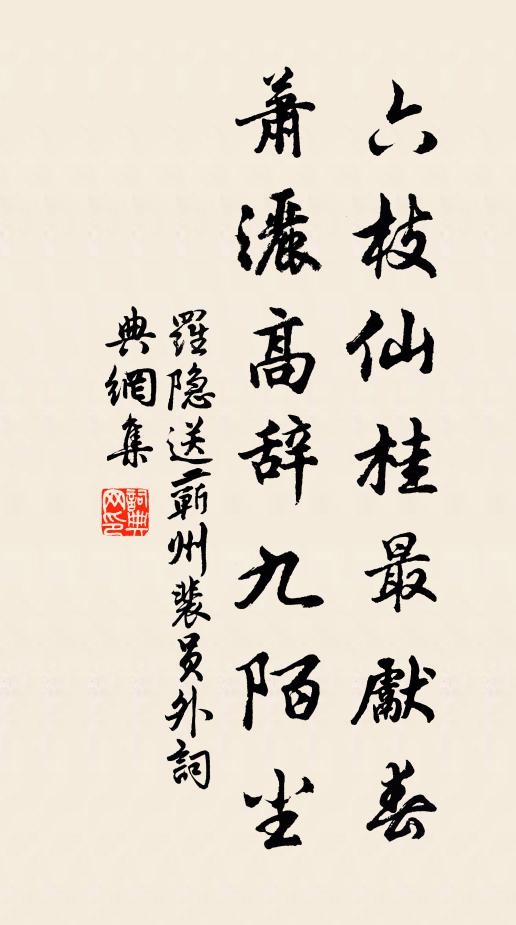 六枝仙桂最獻春
蕭灑高辞九陌尘
羅隐送蘄州裴员外詞
典網集
詞典
网印